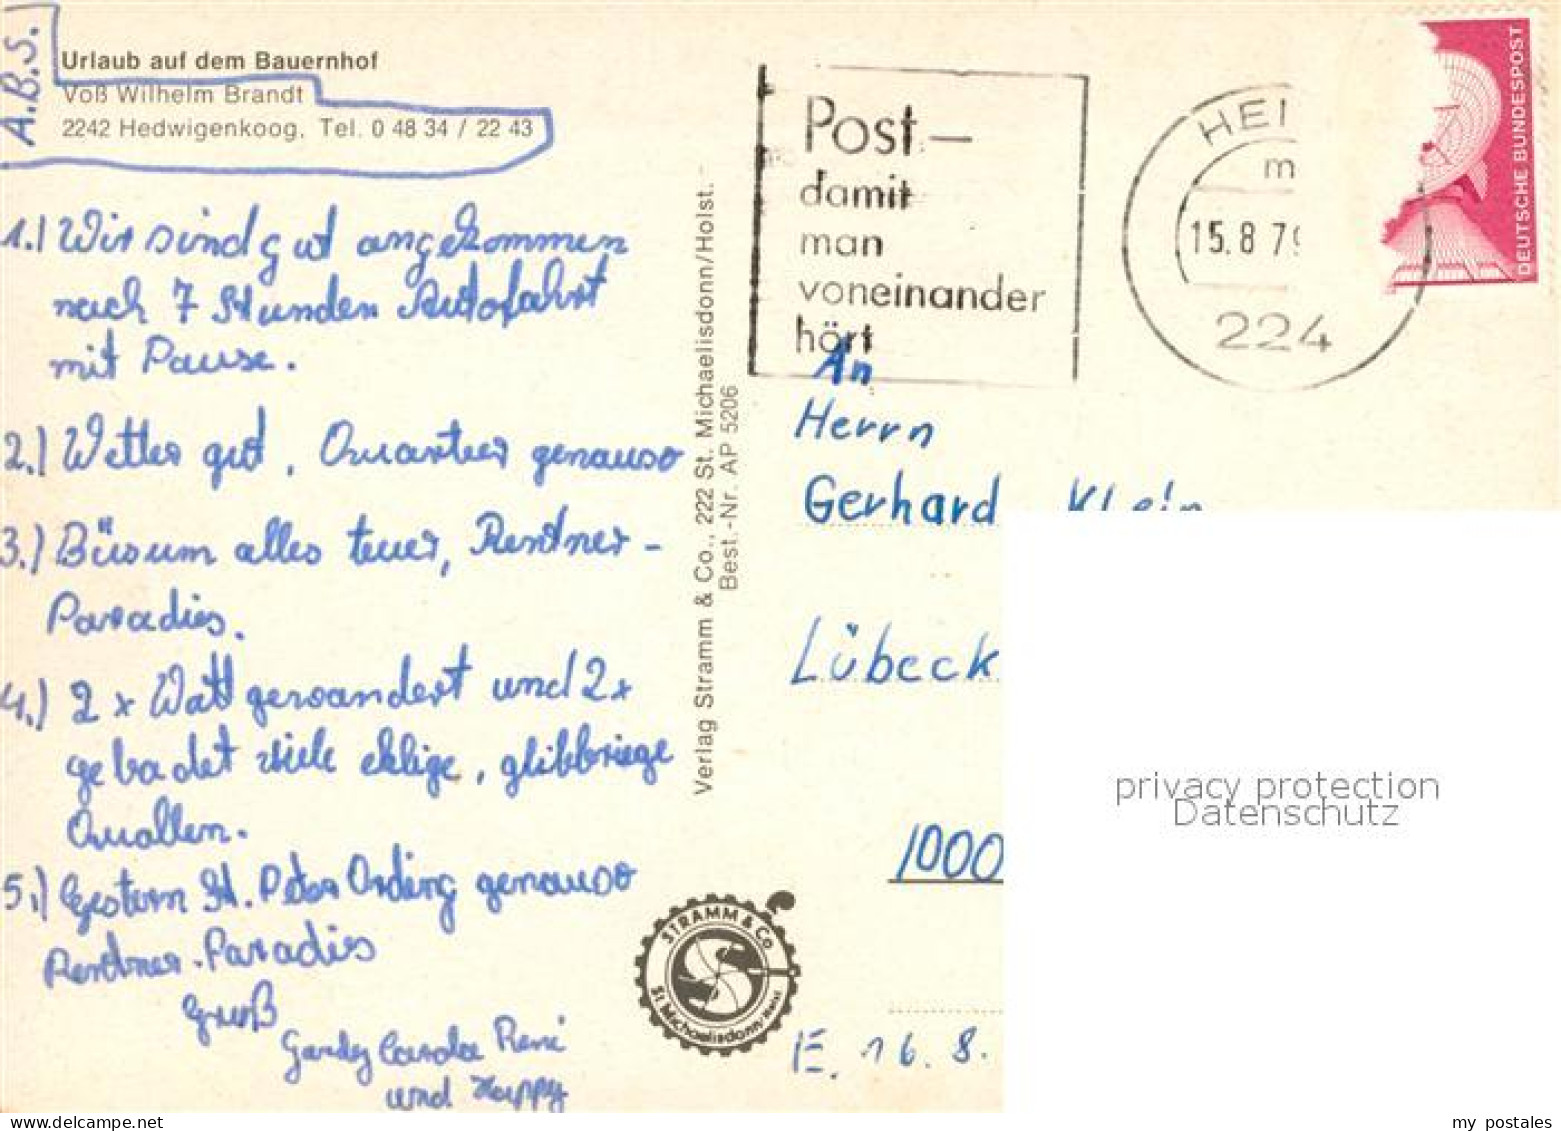 A.B.S.
Urlaub auf dem Bauernhof
Voß Wilhelm Brandt
2242 Hedwigenkoog, Tel. 0 48 34 / 22 43
1.) Wir sind gut angekommen
nach 7 Stunden Autofahrt
mit Pause.
2.) Wetter gut, Quartier genauso
3.) Büsum alles teuer, Rentner-
Paradies.
4.) 2 x Watt gewandert und 2x
gebadet viele eklige, glibbrige
Quallen.
5.) Gestern St. Peter Ording genauso
Rentner-Paradies
Gruß
Gerdy Carola René
und Happy
Verlag Stramm & Co., 222 St. Michaelisdonn/Holst.
Best.-Nr. AP 5206
Post-
damit
man
voneinander
hört
HEI
m
15.8.79
224
DEUTSCHE BUNDESPOST
An
Herrn
Gerhard Klein
Lübeck
1000
STRAMM & Co
St. Michaelisdonn/Holst
E. 16.8.
privacy protection
Datenschutz
my postales